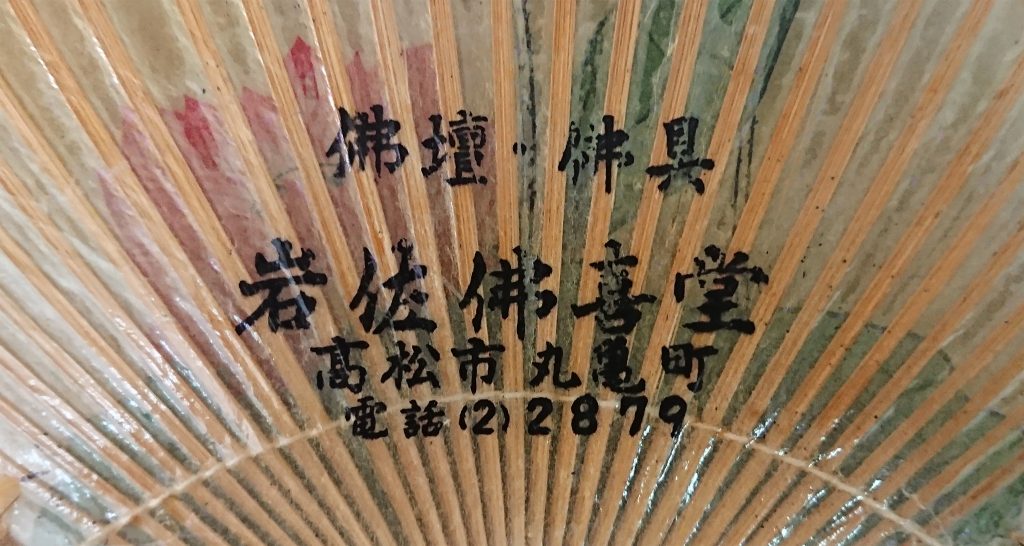 佛壇・佛具
岩佐佛喜堂
高松市丸亀町
電話(2)2879